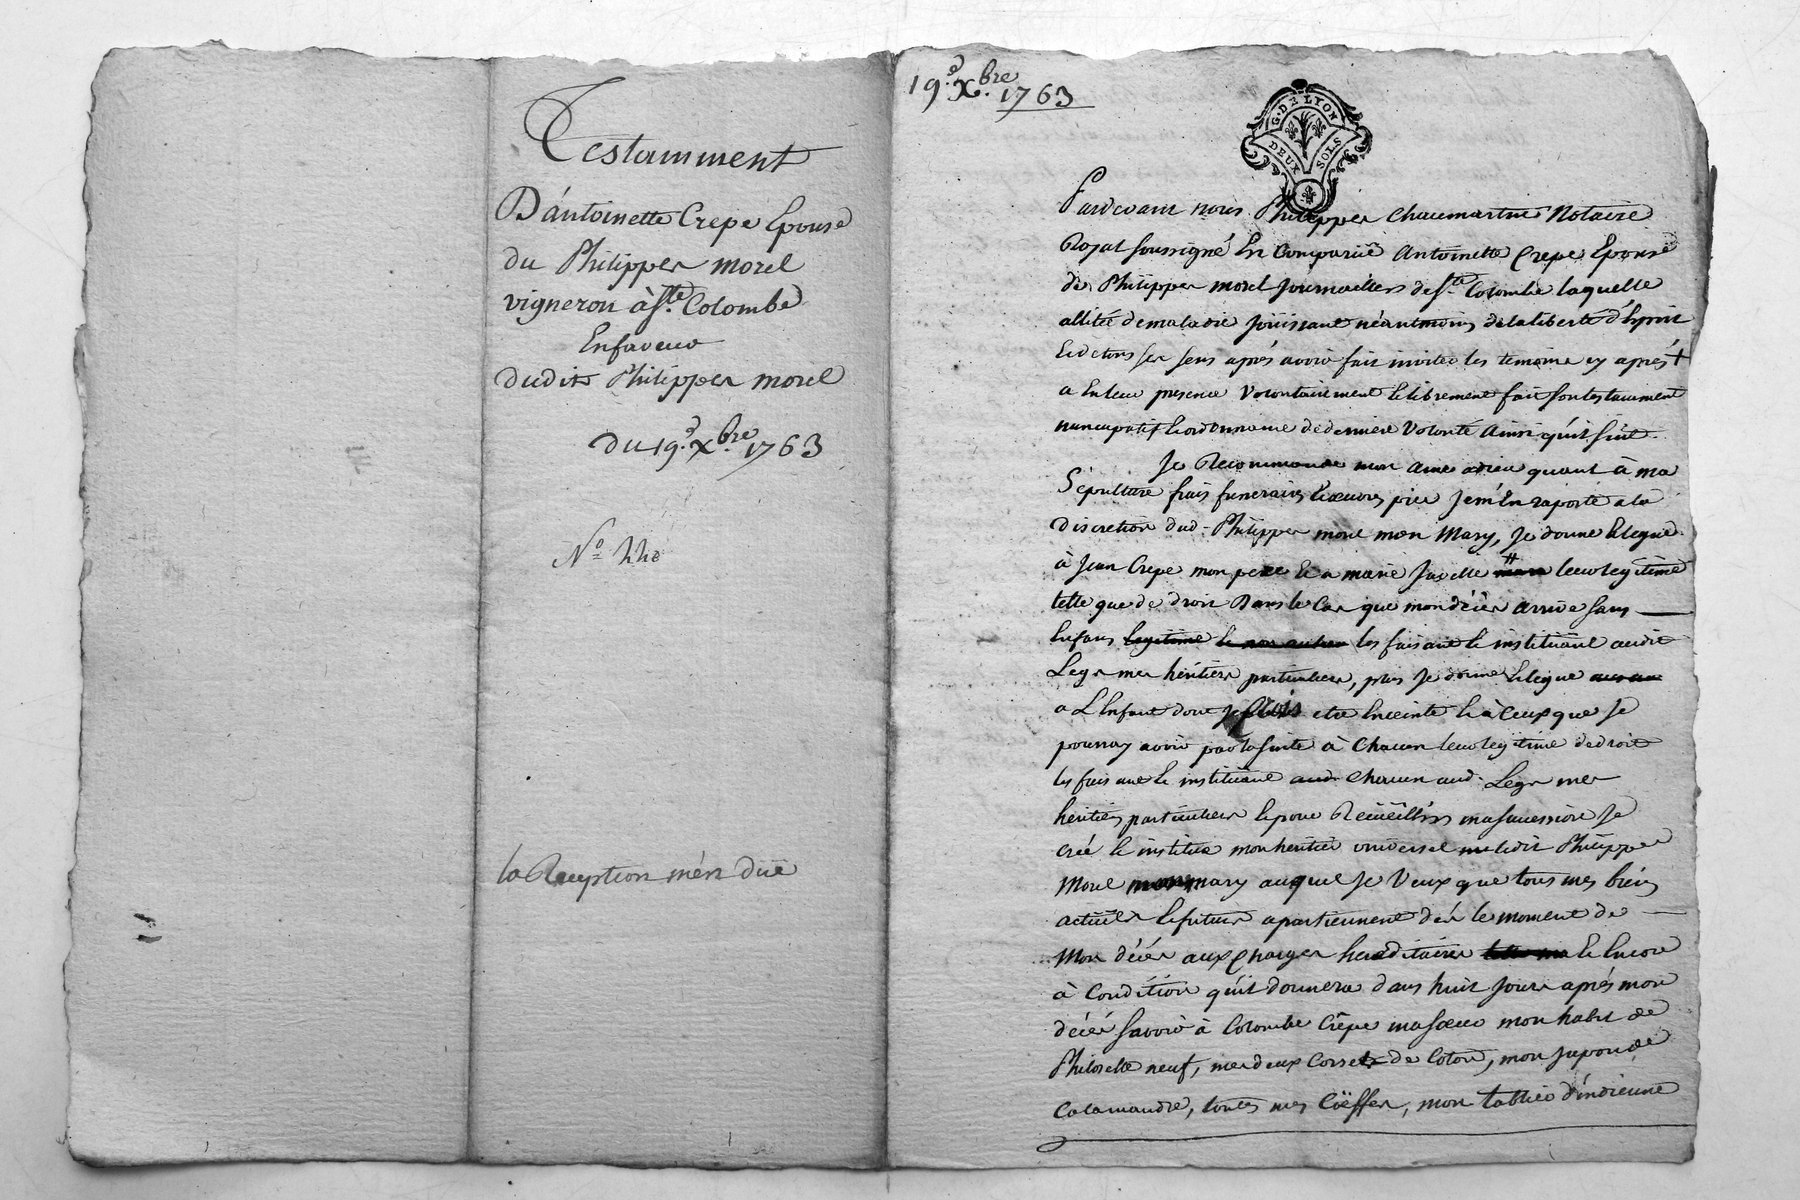 Testamment
D'antoinette Crepe Epouse
du Philipper morel
vigneron à Ste. Colombe
En faveur
dudit Philipper morel
du 19.e Xbre. 1763
No
la Reception m'en düe
19.e Xbre. 1763
G. DE LYON
DEUX SOLS
Pardevant nous Philipper Chaumartin Notaire
Royal soussigné En Comparüe Antoinette Crepe Epouse
de Philipper morel Journaillier de Ste. Colombe laquelle
allitée de maladie Joüissant néantmoins de la liberté d'Esprit
Et de tous ses sens aprés avoir fait inviter les temoins cy aprés +
a En leur presence Volontairement Et librement fait son testament
nuncupatif Et ordonnance de derniere Volonté Ainsi qu'il suit.
Je Recommande mon ame a dieu quant à ma
Sépulture frais funeraires Et œuvres pies Je m'En raporte a la
discretion dud. Philipper morel mon Mary, Je donne Et legue
à Jean Crepe mon pere Et a marie # leur legitime
telle que de droit Dans le Cas que mon décés arrive sans
Enfans les faisant Et instituant audit
Legs mes héritiers particuliers, plus Je donne Et legue
a L'Enfant dont Je crois etre Enceinte Et à Ceux que Je
pourray avoir par la suite à Chacun leur legitime de droit
les faisant Et instituant aud. Chacun aud. Legs mes
héritiers particuliers Et pour Recüeillir ma succession Je
créé Et institue mon heritier universel ledit Philipper
Morel mon mary auquel Je Veux que tous mes biens
actüels Et futurs apartiennent dés le moment de
Mon décés aux Charges hereditaires Et Encore
à Condition qu'il donnera dans huit Jours aprés mon
décés savoir à Colombe Crêpe ma sœur mon habit de
Philoselle neuf, mes deux Corsets de Coton, mon Jupon de
Calamandre, toutes mes Coëffes, mon tablier d'indienne